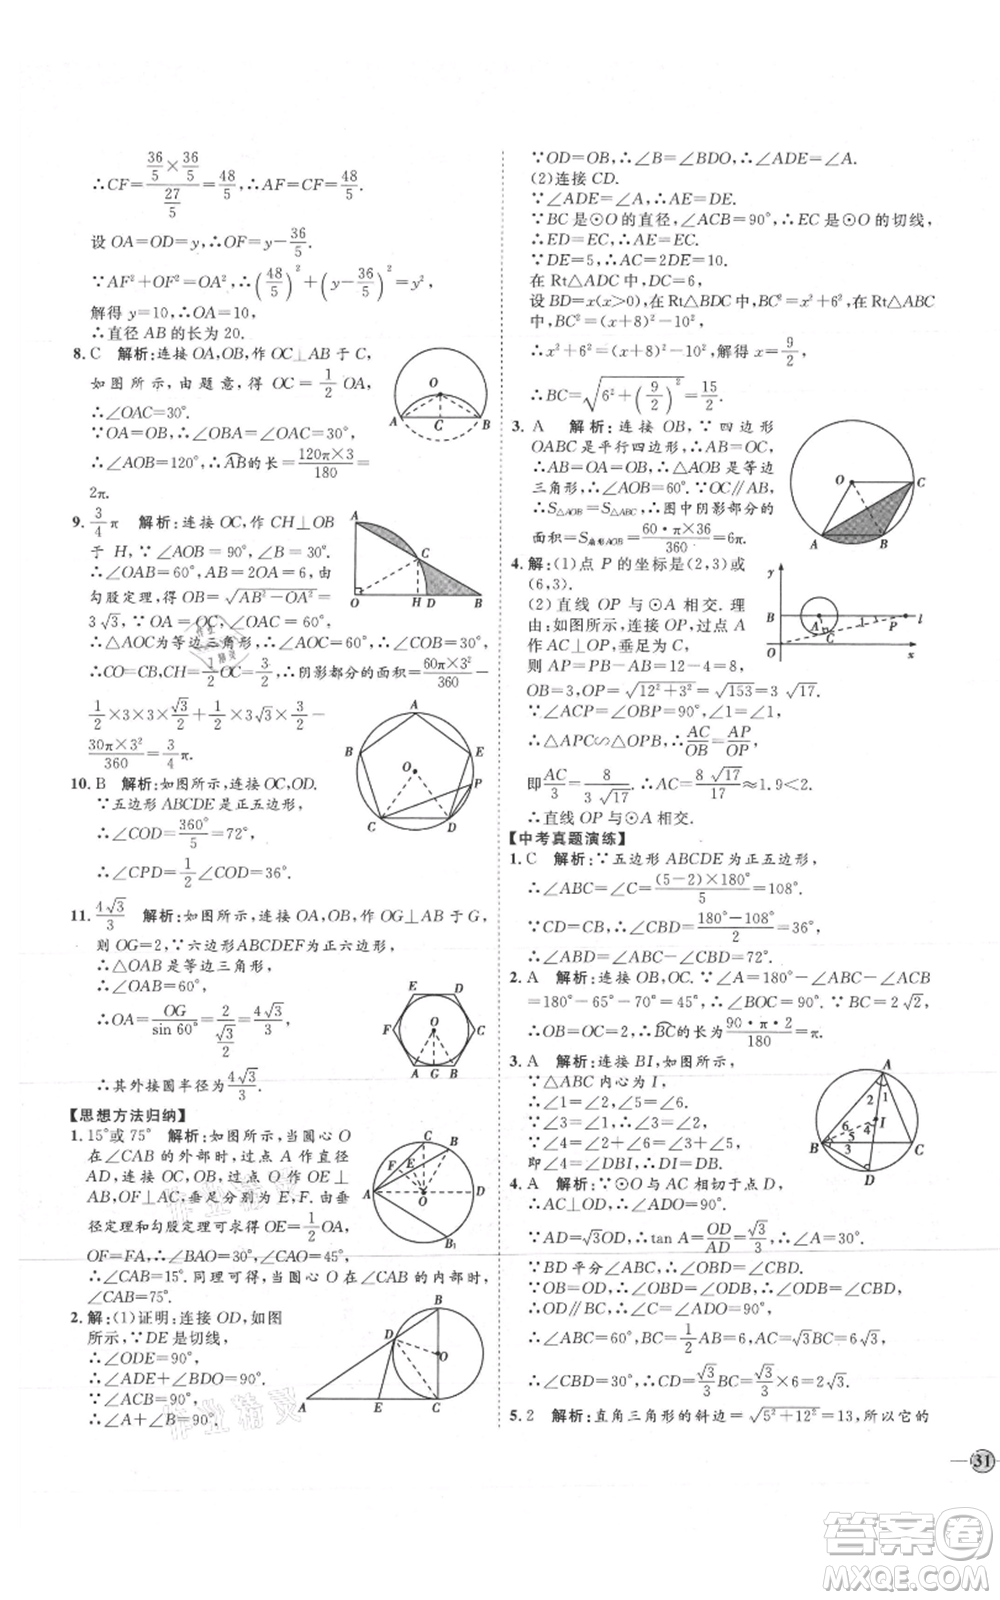 ∴CF=(36/5×36/5)/(27/5)=48/5,∴AF=CF=48/5.
设 OA=OD=y,∴OF=y-36/5.
∵AF²+OF²=OA²,∴(48/5)²+(y-36/5)²=y²,
解得 y=10,∴OA=10,
∴直径 AB 的长为 20.
8. C 解析:连接 OA,OB,作 OC⊥AB 于 C,
如图所示,由题意,得 OC=1/2 OA,
∴∠OAC=30°.
∵OA=OB,∴∠OBA=∠OAC=30°,
∴∠AOB=120°,∴AB的长=120π×3/180=
2π.
9. 3/4 π 解析:连接 OC,作 CH⊥OB
于 H,∵∠AOB=90°,∠B=30°,
∴∠OAB=60°,AB=2OA=6,由
勾股定理,得 OB=√(AB²-OA²)=
3√3,∵OA=OC,∠OAB=60°,
∴△AOC为等边三角形,∴∠AOC=60°,∴∠COB=30°,
∴CO=CB,CH=1/2 OC=3/2,∴阴影部分的面积=60π×3²/360-
1/2×3×3×√3/2+1/2×3√3×3/2-
30π×3²/360=3/4 π.
10. B 解析:如图所示,连接 OC,OD.
∵五边形 ABCDE 是正五边形,
∴∠COD=360°/5=72°,
∴∠CPD=1/2∠COD=36°.
11. 4√3/3 解析:如图所示,连接 OA,OB,作 OG⊥AB 于 G,
则 OG=2,∵六边形ABCDEF为正六边形,
∴△OAB是等边三角形,
∴∠OAB=60°,
∴OA=OG/sin 60°=2/(√3/2)=4√3/3,
∴其外接圆半径为4√3/3.
【思想方法归纳】
1. 15°或 75° 解析:如图所示,当圆心 O
在∠CAB 的外部时,过点 A 作直径
AD,连接 OC,OB,过点 O 作 OE⊥AB,
OF⊥AC,垂足分别为 E,F.由垂
径定理和勾股定理可求得 OE=1/2 OA,
OF=FA,∴∠BAO=30°,∠CAO=45°,
∴∠CAB=15°.同理可得,当圆心 O 在∠CAB 的内部时,
∠CAB=75°.
2. 解:(1)证明:连接 OD,如图
所示,∵DE 是切线,
∴∠ODE=90°,
∴∠ADE+∠BDO=90°,
∵∠ACB=90°,
∴∠A+∠B=90°.
∵OD=OB,∴∠B=∠BDO,∴∠ADE=∠A.
(2)连接 CD.
∵∠ADE=∠A,∴AE=DE.
∵BC 是⊙O 的直径,∠ACB=90°,∴EC 是⊙O 的切线,
∴ED=EC,∴AE=EC.
∵DE=5,∴AC=2DE=10.
在 Rt△ADC 中,DC=6,
设 BD=x(x>0),在 Rt△BDC 中,BC²=x²+6²,在 Rt△ABC
中,BC²=(x+8)²-10²,
∴x²+6²=(x+8)²-10²,解得 x=9/2,
∴BC=√(6²+(9/2)²)=15/2.
3. A 解析:连接 OB,∵四边形
OABC 是平行四边形,∴AB=OC,
∴AB=OA=OB,∴△AOB 是等边
三角形,∴∠AOB=60°.∵OC∥AB,
∴S△AOB=S△ABC,∴图中阴影部分的
面积=S扇形AOB=60·π×36/360=6π.
4. 解:(1)点 P 的坐标是(2,3)或
(6,3).
(2)直线 OP 与⊙A 相交.理
由:如图所示,连接 OP,过点 A
作 AC⊥OP,垂足为 C,
则 AP=PB-AB=12-4=8,
OB=3,OP=√(12²+3²)=√153=3√17.
∵∠ACP=∠OBP=90°,∠1=∠1,
∴△APC∽△OPB,∴AC/OB=AP/OP,
即AC/3=8/(3√17),∴AC=8√17/17≈1.9<2,
∴直线 OP 与⊙A 相交.
【中考真题演练】
1. C 解析:∵五边形 ABCDE 为正五边形,
∴∠ABC=∠C=(5-2)×180°/5=108°,
∵CD=CB,∴∠CBD=(180°-108°)/2=36°,
∴∠ABD=∠ABC-∠CBD=72°.
2. A 解析:连接 OB,OC.∵∠A=180°-∠ABC-∠ACB=
180°-65°-70°=45°,∴∠BOC=90°.∵BC=2√2,
∴OB=OC=2,∴BC的长为90·π·2/180=π.
3. A 解析:连接 BI,如图所示,
∵△ABC 内心为 I,
∴∠1=∠2,∠5=∠6.
∵∠3=∠1,∴∠3=∠2.
∵∠4=∠2+∠6=∠3+∠5,
即∠4=∠DBI,∴DI=DB.
4. A 解析:∵⊙O 与 AC 相切于点 D,
∴AC⊥OD,∴∠ADO=90°.
∵AD=√3OD,∴tan A=OD/AD=√3/3,∴∠A=30°.
∵BD 平分∠ABC,∴∠OBD=∠CBD,
∵OB=OD,∴∠OBD=∠ODB,∴∠ODB=∠CBD,
∴OD∥BC,∴∠C=∠ADO=90°,
∴∠ABC=60°,BC=1/2 AB=6,AC=√3BC=6√3,
∴∠CBD=30°,∴CD=√3/3 BC=√3/3×6=2√3.
5. 2 解析:直角三角形的斜边=√(5²+12²)=13,所以它的
31
答案圈
MXQE.COM